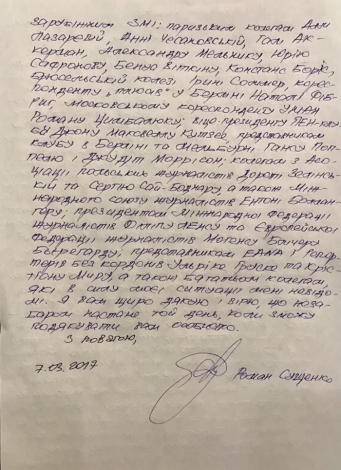 зарубіжним ЗМІ: паризьким колегам Аллі
Лазаревій, Анні Чесановській, Галі Ак-
керман, Александру Мельнику, Юрію
Сафронову, Бенуа Віткіну, Констанс Боріс,
брюсельській колезі Ірині Соммер, корес-
понденту "тиснів" у Берліні Наталі Фіб-
риг, московському кореспонденту УНІАН
Роману Цимбалюку; віце-президенту ПЕН-клу-
бу Джону Маковеллу Кутзеє, представникам
клубу в Берліні та Мельбурні Ганку Поп-
пелю і Джудіт Моррісон; колегам з Асо-
ціації польських журналістів Дороті Зєлінсь-
кій та Сергію Сай-Боднару, а також Між-
народного союзу журналістів Ентоні Беллан-
гору; президентам Міжнародної Федерації
журналістів Філіпу Леюсу та Європейської
Федерації журналістів Могенсу Блічеру
Б'єрегарду; представникам ЕАЖА і Репор-
терів без кордонів Ульріке Груско та Кріс-
тіану Міру, а також багатьом колегам,
які в силу моєї ситуації мені невідо-
мі. Я вам щиро дякую і вірю, що неза-
баром настане той день, коли зможу
подякувати вам особисто.
З повагою,
7.03.2017
Роман Сущенко